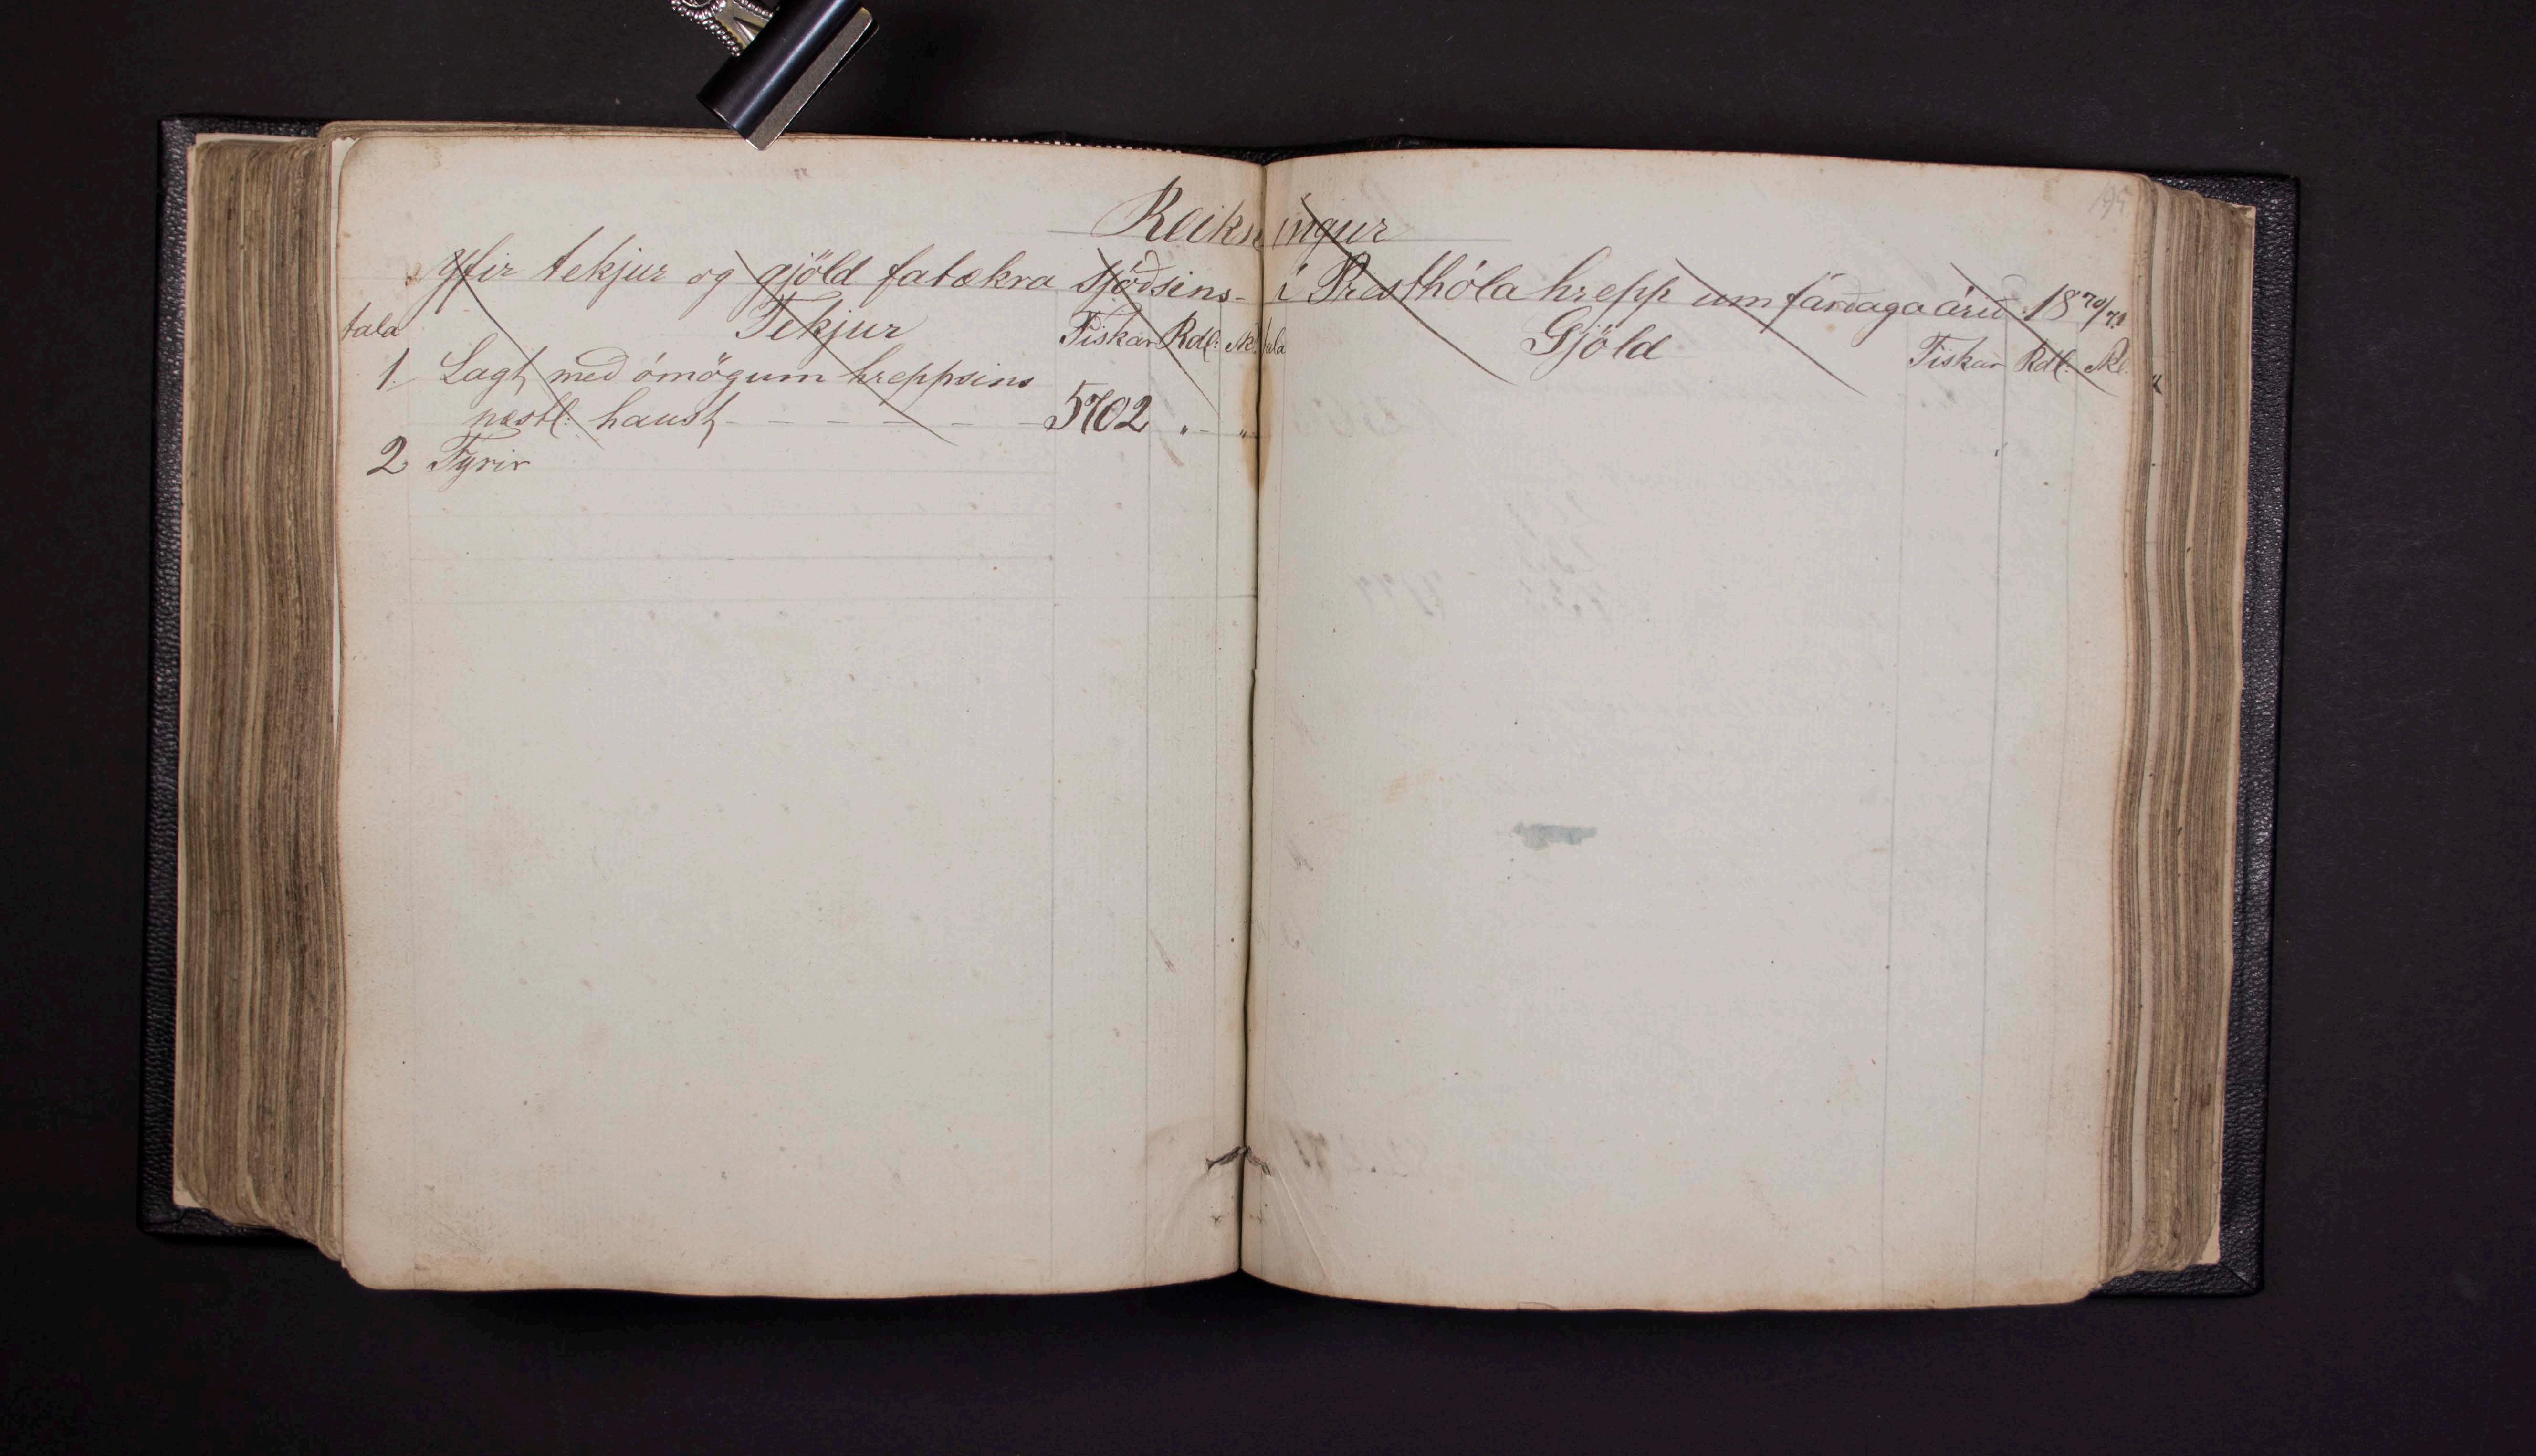 195
Reikningur
yfir tekjur og gjöld fatækra sjóðsins í Presthóla hrepp um fardaga árið 1870/71
tala Tekjur Fiskar Rdl: Sk. tala Gjöld Fiskar Rdl: Sk.
1. Lagt með ómögum hreppsins
næstl: haust - - - - - - 5702 „ - „
2 Fyrir